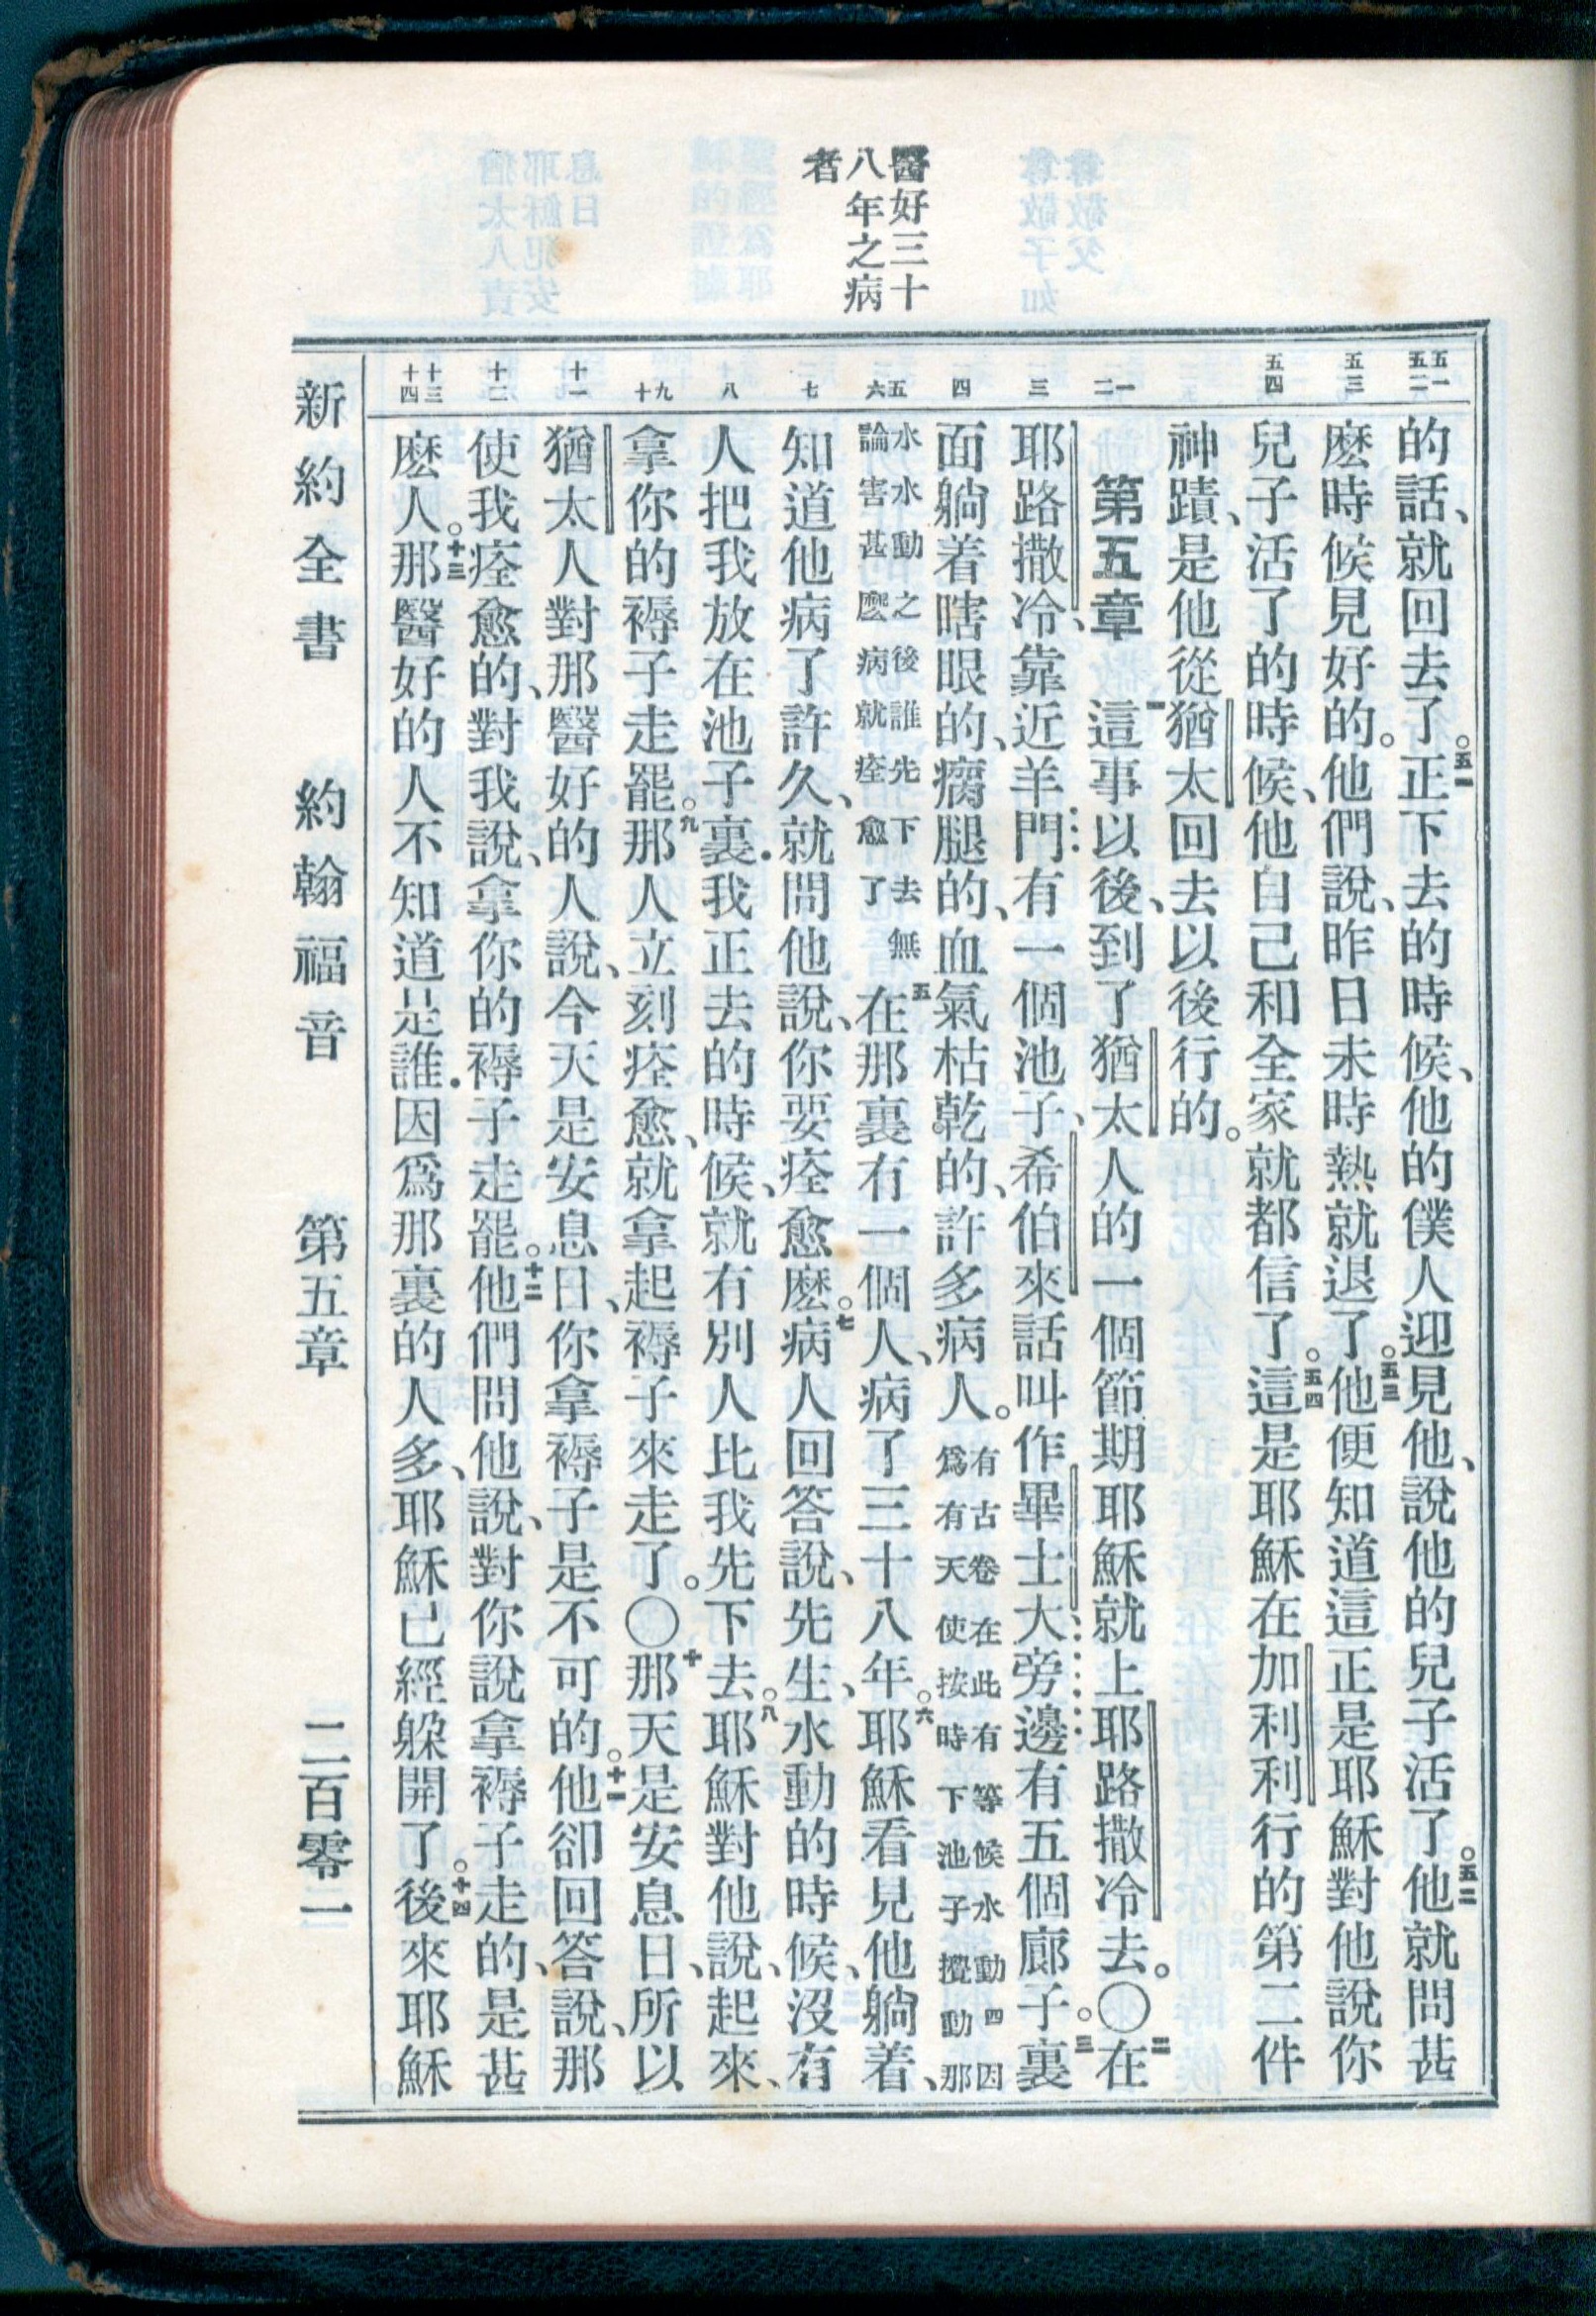 醫好三十
八年之病
者
五一
五二
五三
五四
一
二
三
四
五
六
七
八
九
十
十一
十二
十三
十四
的話、就回去了。五一正下去的時候、他的僕人迎見他、說他的兒子活了。五二他就問甚
麽時候見好的。他們說、昨日未時熱就退了。五三他便知道這正是耶穌對他說你
兒子活了的時候、他自己和全家就都信了。五四這是耶穌在加利利行的第二件
神蹟、是他從猶太回去以後行的。
第五章　一這事以後、到了猶太人的一個節期耶穌就上耶路撒冷去。〇二在
耶路撒冷、靠近羊門有一個池子、希伯來話叫作畢士大旁邊有五個廊子。三裏
面躺着瞎眼的、瘸腿的、血氣枯乾的、許多病人。有古卷在此有等候水動四因
爲有天使按時下池子攪動那
水水動之後誰先下去無
論害甚麽病就痊愈了
五在那裏有一個人、病了三十八年。六耶穌看見他躺着、
知道他病了許久、就問他說、你要痊愈麽。七病人回答說、先生、水動的時候、沒有
人把我放在池子裏．我正去的時候、就有別人比我先下去。八耶穌對他說、起來、
拿你的褥子走罷。九那人立刻痊愈、就拿起褥子來走了。〇十那天是安息日、所以
猶太人對那醫好的人說、今天是安息日、你拿褥子是不可的。十一他卻回答說、那
使我痊愈的、對我說、拿你的褥子走罷。十二他們問他說、對你說拿褥子走的、是甚
麽人。十三那醫好的人不知道是誰．因爲那裏的人多、耶穌已經躱開了。十四後來耶穌
新約全書　約翰福音　第五章　二百零一